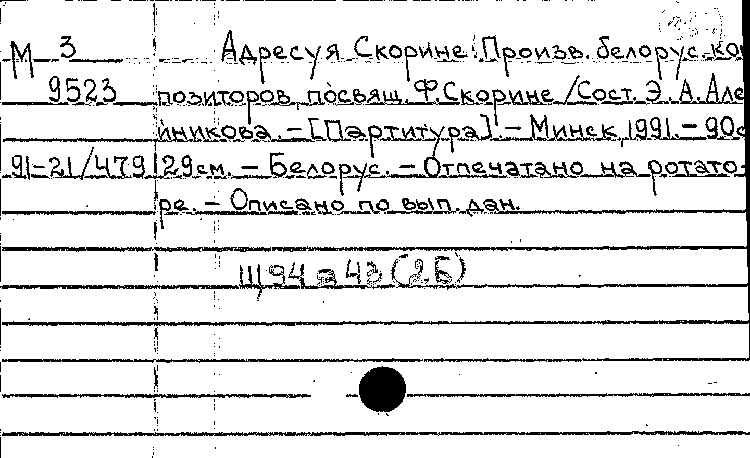 М 3 Адресуя Скорине: Произв. белорус. ко
9523 позиторов, посвящ. Ф. Скорине / Сост. Э. А. Але
йникова. – [Партитура]. – Минск, 1991. – 90с
91-21/479 29см. – Белорус. – Отпечатано на ротато-
ре. – Описано по вып. дан.
Щ94 43(2Б)